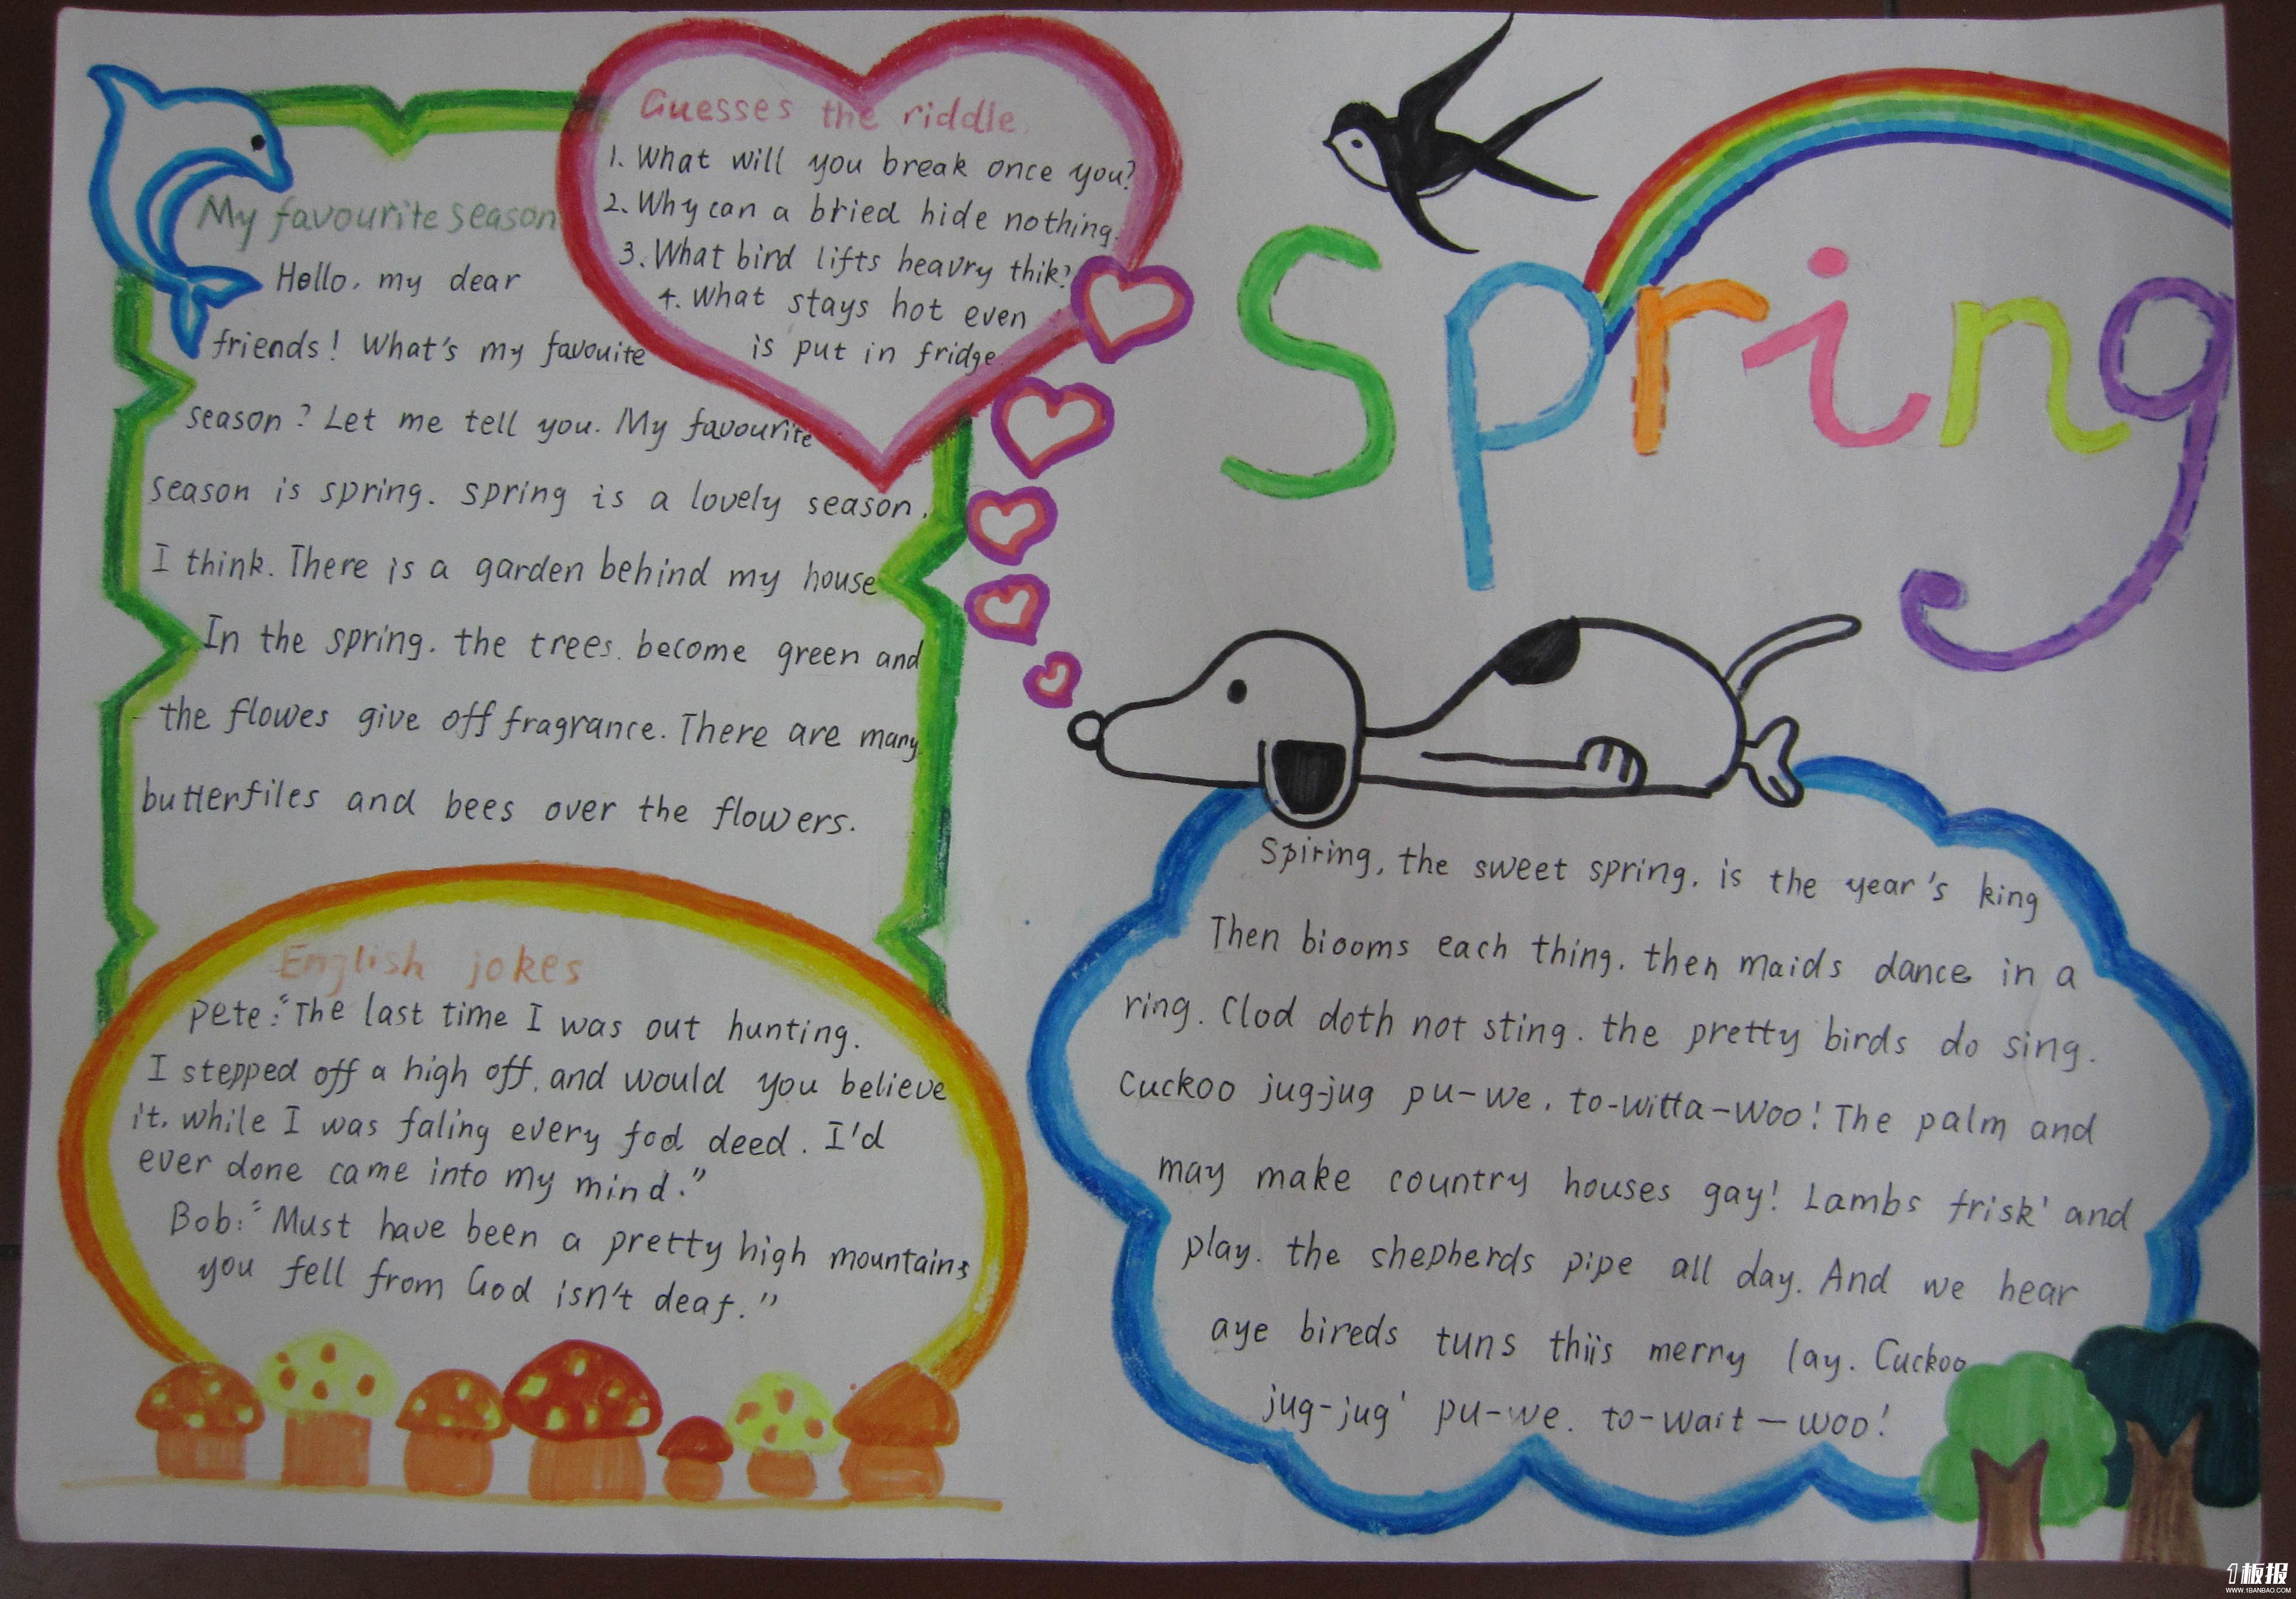 Spring
Guesses the riddle
1. What will you break once you?
2. Why can a bried hide nothing.
3. What bird lifts heavry thik?
4. What stays hot even
is put in fridge
My favourite season
Hello, my dear
friends! What's my favouite
season? Let me tell you. My favourite
season is spring. spring is a lovely season.
I think. There is a garden behind my house
In the spring. the trees. become green and
the flowes give off fragrance. There are many
butterfiles and bees over the flowers.
English jokes
Pete: "The last time I was out hunting.
I stepped off a high off, and would you believe
it, while I was faling every fod deed. I'd
ever done came into my mind."
Bob: "Must have been a pretty high mountains
you fell from God isn't deaf."
Spiring, the sweet spring. is the year's king
Then biooms each thing. then maids dance in a
ring. Clod doth not sting. the pretty birds do sing.
Cuckoo jug-jug pu-we, to-witta-woo! The palm and
may make country houses gay! Lambs frisk' and
play. the shepherds pipe all day. And we hear
aye bireds tuns thiis merry lay. Cuckoo
jug-jug' pu-we. to-wait-woo!
1板报
WWW.1BANBAO.COM